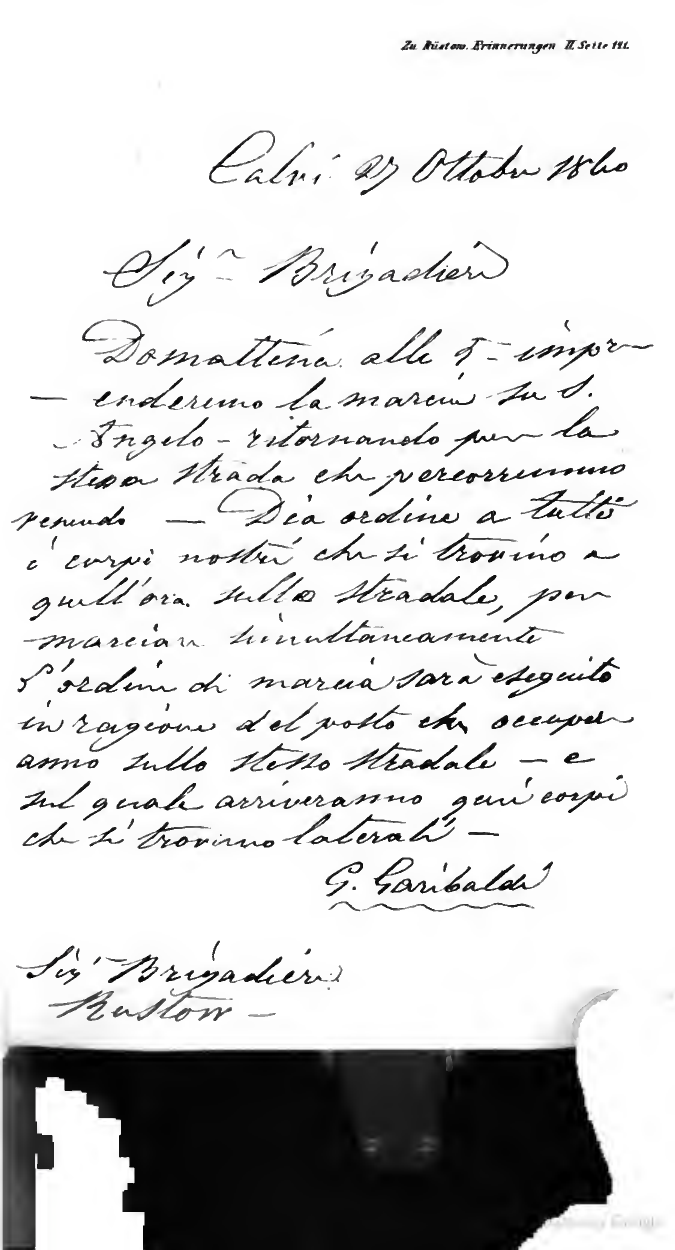 Zu Rüstow. Erinnerungen II. Seite 111.
Calvi 27 Ottobre 1860
Sigr Brigadiere
Domattina alle 5 - impr
- enderemo la marcia su S.
Angelo - ritornando per la
stessa strada che percorremmo
venendo — Dia ordine a tutti
i corpi nostri che si trovino a
quell'ora sullo stradale, per
marciare simultaneamente
L'ordine di marcia sarà eseguito
in ragione del posto che occuper
anno sullo stesso stradale — e
sul quale arriveranno quei corpi
che si trovino laterali —
G. Garibaldi
Sigr Brigadiere
Rustow —